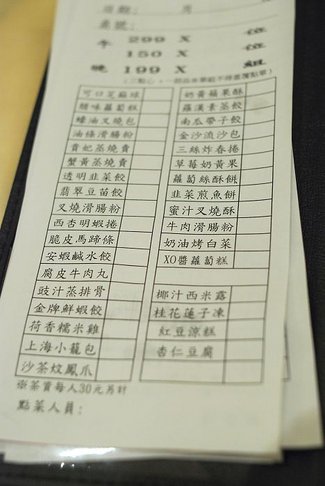 桌號:
午 299 X 位
150 X 位
晚 199 X 組
可口芝麻球
臘味蘿蔔糕
蠔油叉燒包
油條滑腸粉
貴妃蒸燒賣
蟹黃蒸燒賣
透明韭菜餃
翡翠豆苗餃
叉燒滑腸粉
西杏明蝦捲
脆皮馬蹄條
安蝦鹹水餃
腐皮牛肉丸
豉汁蒸排骨
金牌鮮蝦餃
荷香糯米雞
上海小籠包
沙茶炆鳳爪
奶黃蘋果酥
羅漢素蒸餃
南瓜帶子餃
金沙流沙包
三絲炸春捲
草莓奶黃果
蘿蔔絲酥餅
韭菜煎魚餅
蜜汁叉燒酥
牛肉滑腸粉
奶油烤白菜
XO醬蘿蔔糕
椰汁西米露
桂花蓮子凍
紅豆涼糕
杏仁豆腐
※茶資每人30元另計
點菜人員: